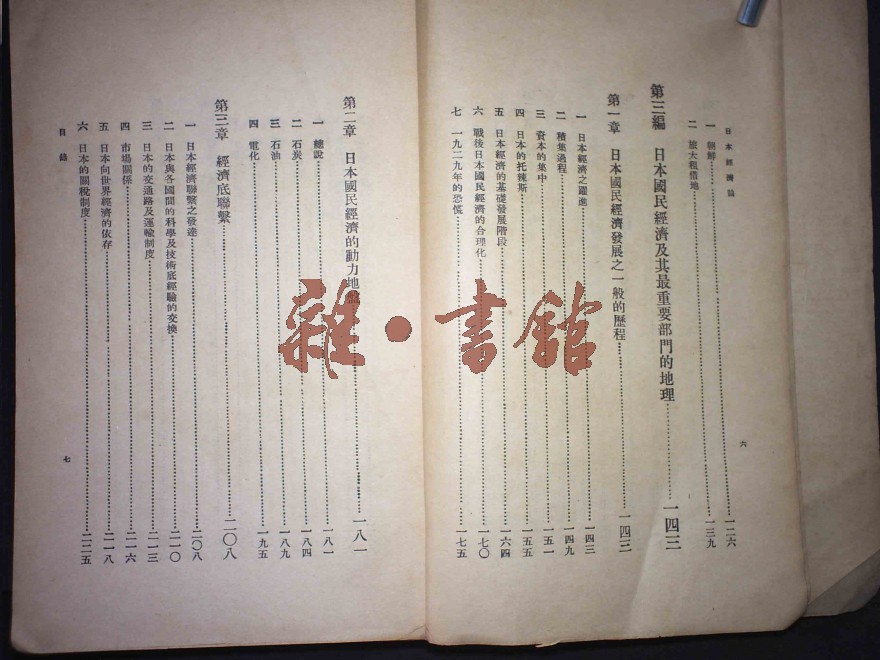 日本經濟論
六
一 朝鮮 一二六
二 旅大租借地 一三九
第三編 日本國民經濟及其最重要部門的地理 一四三
第一章 日本國民經濟發展之一般的歷程 一四三
一 日本經濟之躍進 一四三
二 積集過程 一四九
三 資本的集中 一五一
四 日本的托辣斯 一五五
五 日本經濟的基礎發展階段 一六四
六 戰後日本國民經濟的合理化 一七〇
七 一九二九年的恐慌 一七五
第二章 日本國民經濟的動力地 一八一
一 總說 一八一
二 石炭 一八四
三 石油 一八九
四 電化 一九五
第三章 經濟底聯繫 二〇八
一 日本經濟聯繫之發達 二〇八
二 日本與各國間的科學及技術底經驗的交換 二一〇
三 日本的交通路及運輸制度 二一三
四 市場關係 二一六
五 日本向世界經濟的依存 二一八
六 日本的關稅制度 二二五
目錄
七
雜·書館